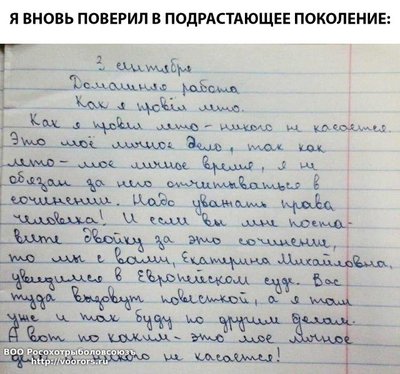 Я ВНОВЬ ПОВЕРИЛ В ПОДРАСТАЮЩЕЕ ПОКОЛЕНИЕ:
3 сентября
Домашняя работа
Как я провёл лето.
Как я провёл лето - никого не касается.
Это моё личное дело, так как
лето - моё личное время, я не
обязан за него отчитываться в
сочинении. Надо уважать права
человека! И если вы мне поста-
вите двойку за это сочинение,
то мы с вами, Екатерина Михайловна,
увидимся в Европейском суде. Вас
туда вызовут повесткой, а я там
уже и так буду по другим делам.
А вот по каким - это моё личное
дело и никого не касается!
ВОО Росохотрыболовсоюзъ
http://voorors.ru